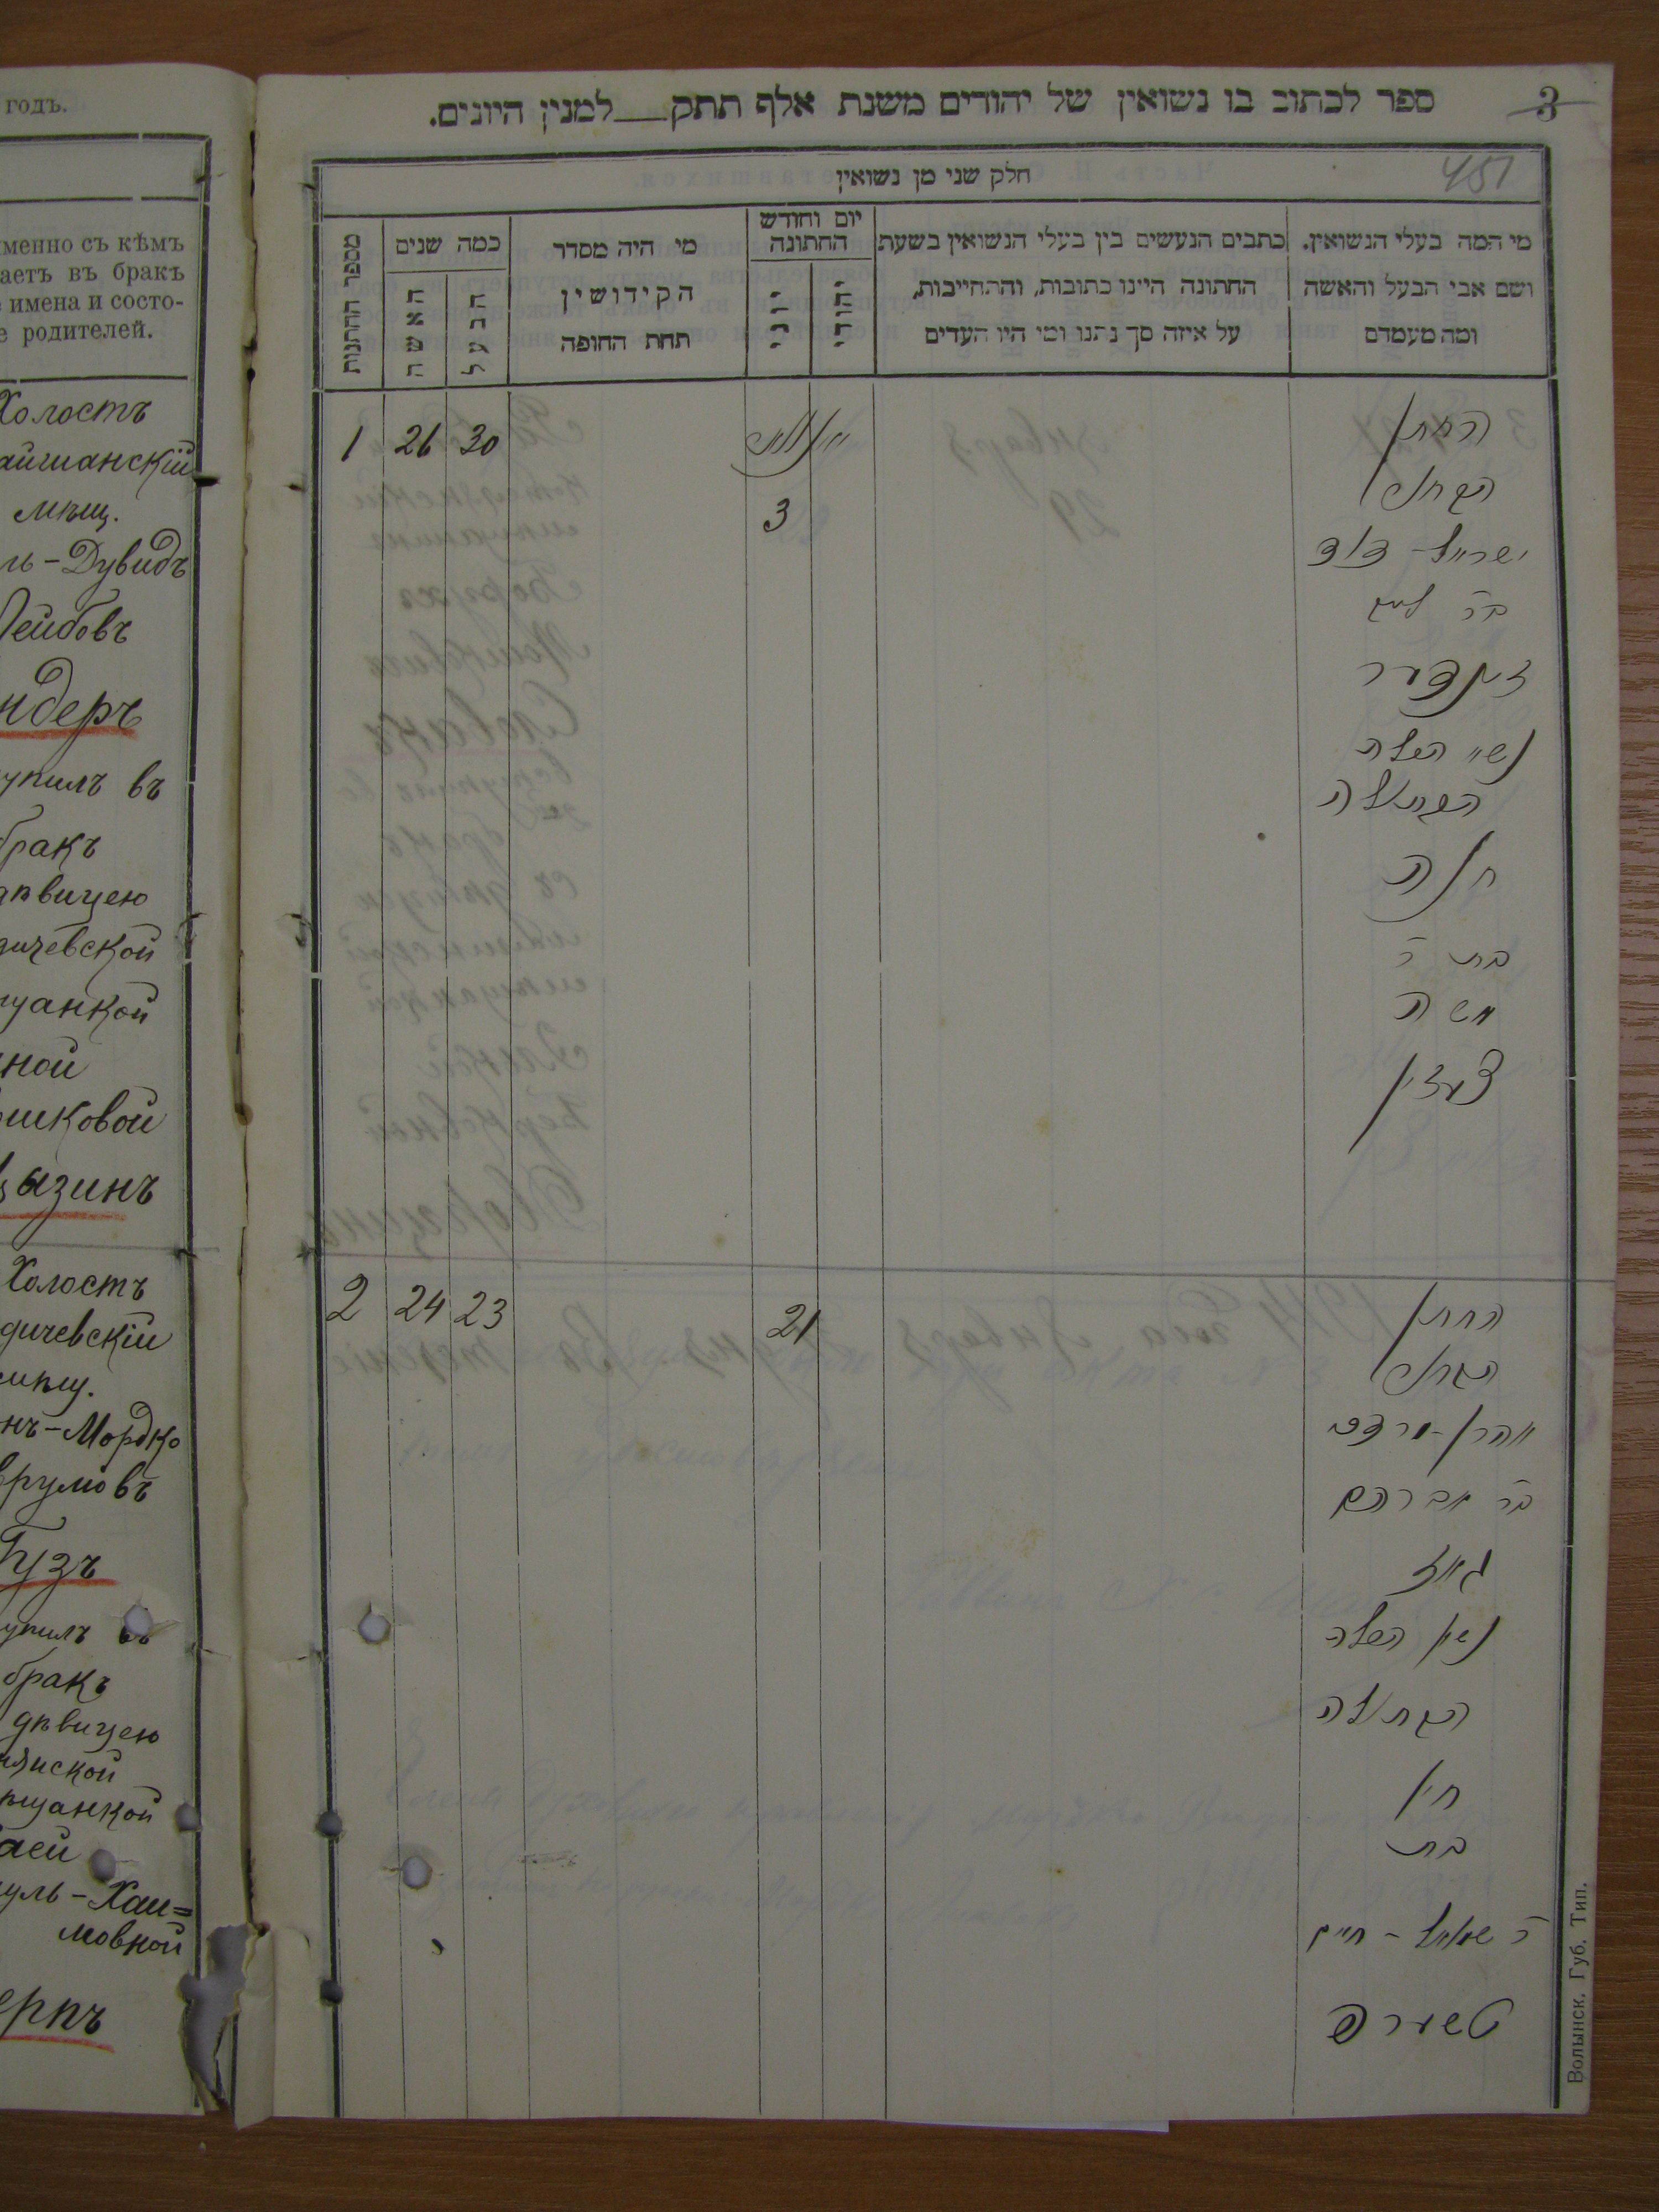 годъ.
именно съ кѣмъ
аетъ въ бракъ
имена и состо-
е родителей.
Холостъ
айшанскій
мѣщ.
ль-Дувидъ
Лейбовъ
ндеръ
упилъ въ
бракъ
дѣвицею
дичевской
щанкой
ной
шковой
ызинъ
Холостъ
дичевскій
мѣщ.
нъ-Мордко
врумовъ
Гузъ
упилъ въ
бракъ
дѣвицею
янской
ѣщанкой
аей
уль-Хаи=
мовной
ерпъ
3
ספר לכתוב בו נשואין של יהודים משנת אלף תתק___למנין היונים.
451
חלק שני מן נשואין
מי המה בעלי הנשואין.
ושם אבי הבעל והאשה
ומה מעמדם
כתבים הנעשים בין בעלי הנשואין בשעת
החתונה היינו כתובות, והתחייבות,
על איזה סך נתנו ומי היו העדים
יום וחודש
החתונה
יהודי
יוני
מי היה מסדר
הקידושין
תחת החופה
כמה שנים
הבעל
האשה
מספר החתנות
1 26 30
3
החתן
הבחור
ישראל-דוד
בר ליב
זינדער
נשא הבתולה
חנה
בת ר
משה
2 24 23
21
החתן
הבחור
אהרן-מרדכי
בר אברהם
גוז
נשא
הבתולה
חיי
בת
ר שמואל-חיים
טשערפ
Волынск. Губ. Тип.